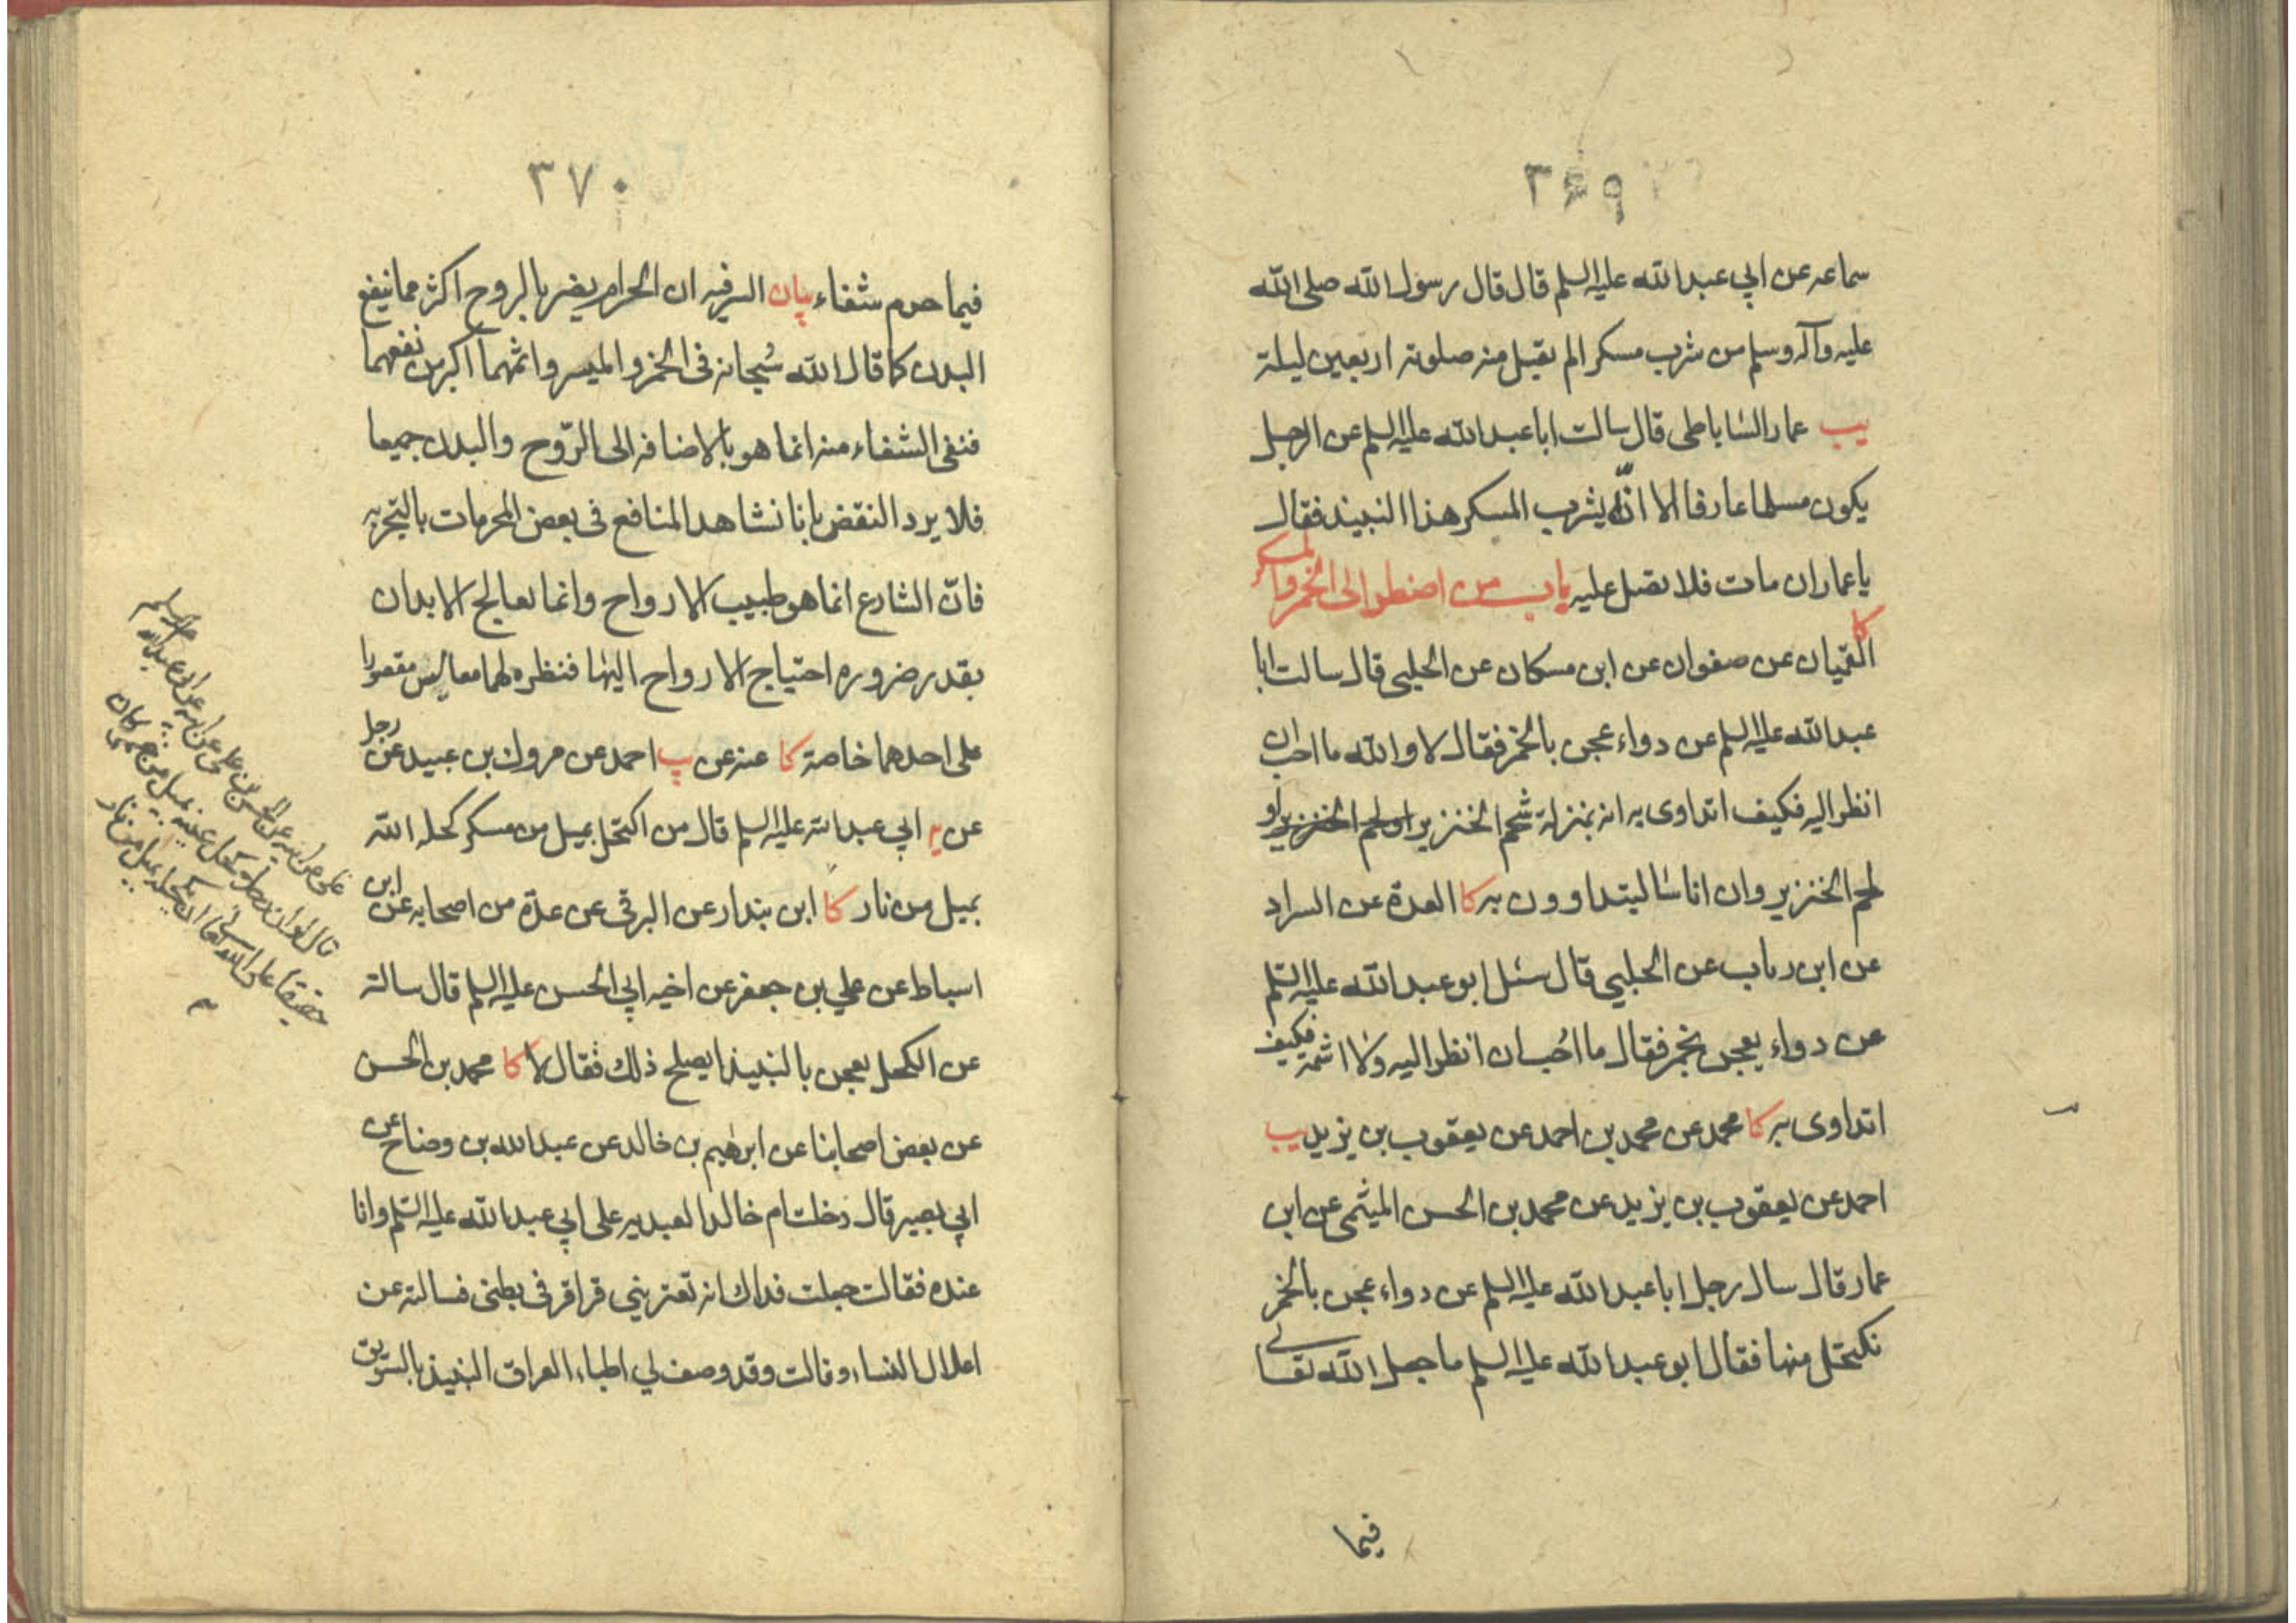 ٣٦٩
سماعه عن ابي عبد الله عليه السلم قال قال رسول الله صلى الله
عليه وآله وسلم من شرب مسكرا لم يقبل منه صلوته اربعين ليلة
يب عمار الساباطى قال سالت ابا عبد الله عليه السلم عن الرجل
يكون مسلما عارفا الا انّه يشرب المسكر هذا النبيذ فقال
يا عمار ان مات فلا تصل عليه باب من اضطر الى الخمر والمسكر
كا القميان عن صفوان عن ابن مسكان عن الحلبي قال سالت ابا
عبد الله عليه السلم عن دواء عجن بالخمر فقال لا والله ما احب ان
انظر اليه فكيف اتداوى به انه بمنزلة شحم الخنزير او لحم الخنزير او
لحم الخنزير وان اناسا ليتداوون به كا العدة عن السراد
عن ابن رباب عن الحلبي قال سئل ابو عبد الله عليه السّلم
عن دواء يعجن بخمر فقال ما احُب ان انظر اليه ولا اشمه فكيف
اتداوى به كا محمد عن محمد بن احمد عن يعقوب بن يزيد يب
احمد عن يعقوب بن يزيد عن محمد بن الحسن الميثمى عن ابن
عمار قال سال رجل ابا عبد الله عليه السلم عن دواء عجن بالخمر
نكتحل منها فقال ابو عبد الله عليه السلم ما جعل الله تعالى
فيما
٣٧٠
فيما حرم شفاء بيان السر فيه ان الحرام يضر بالروح اكثر مما ينفع
البدن كما قال الله سُبحانه فى الخمر والميسر واثمهما اكبر من نفعهما
فنفى الشفاء منه انما هو بالاضافه الى الرّوح والبدن جميعا
فلا يرد النقض بانا نشاهد المنافع فى بعض المحرمات بالتجربه
فانّ الشارع انما هو طبيب الارواح وانما يعالج الابدان
بقدر ضروره احتياج الارواح اليها فنظره لهما معا ليس مقصورا
على احدهما خاصة كا عنه عن يب احمد عن مروك بن عبيد عن رجل
عن يه ابي عبد الله عليه السلم قال من اكتحل بميل من مسكر كحله الله
بميل من نار كا ابن بندار عن البرقى عن عدة من اصحابه عن ابن
اسباط عن علي بن جعفر عن اخيه ابي الحسن عليه السلم قال سالته
عن الكحل يعجن بالنبيذ ايصلح ذلك فقال لا كا محمد بن الحسن
عن بعض اصحابنا عن ابرهيم بن خالد عن عبد الله بن وضاح عن
ابي بصير قال دخلت ام خالد العبديه على ابي عبد الله عليه السّلم وانا
عنده فقالت جعلت فداك انه تعتريني قراقر فى بطنى فسالته عن
اعلال النساء وقالت وقد وصف لي اطباء العراق النبيذ بالسّويق